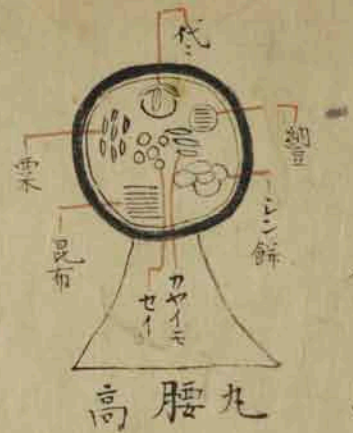 代ミ
納豆
シン餅
カヤイモ
セイ
昆布
栗木
高腰丸